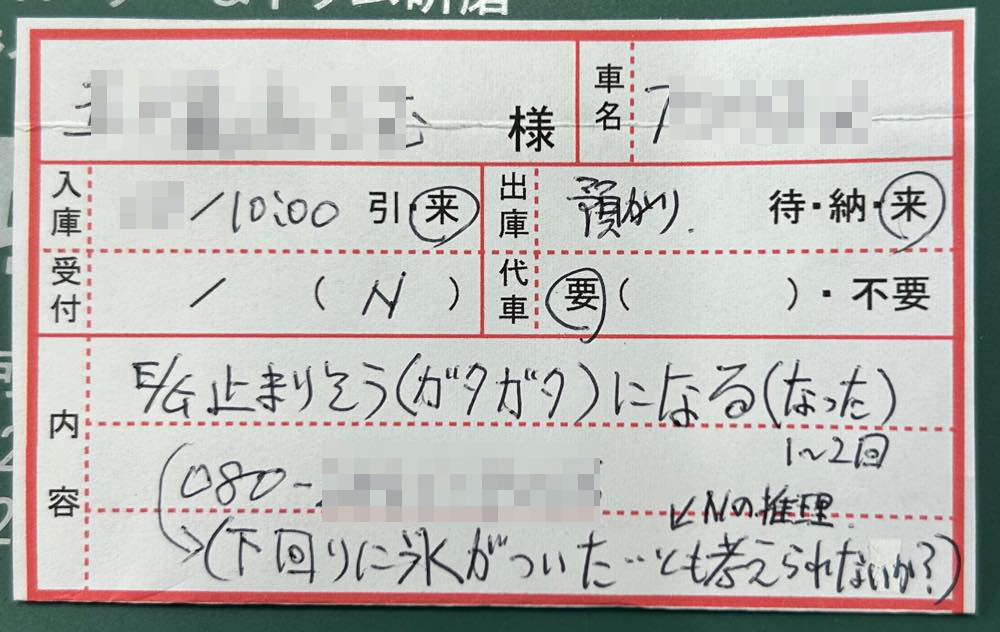 ドラム研磨
様
車名
入庫 /10:00 引・来
出庫 預かり. 待・納・来
受付 / ( N )
代車 要( )・不要
内容
E/G止まりそう(ガタガタ)になる(なった)
1~2回
080-
↙Nの推理
→(下回りに氷がついた…とも考えられないか?)